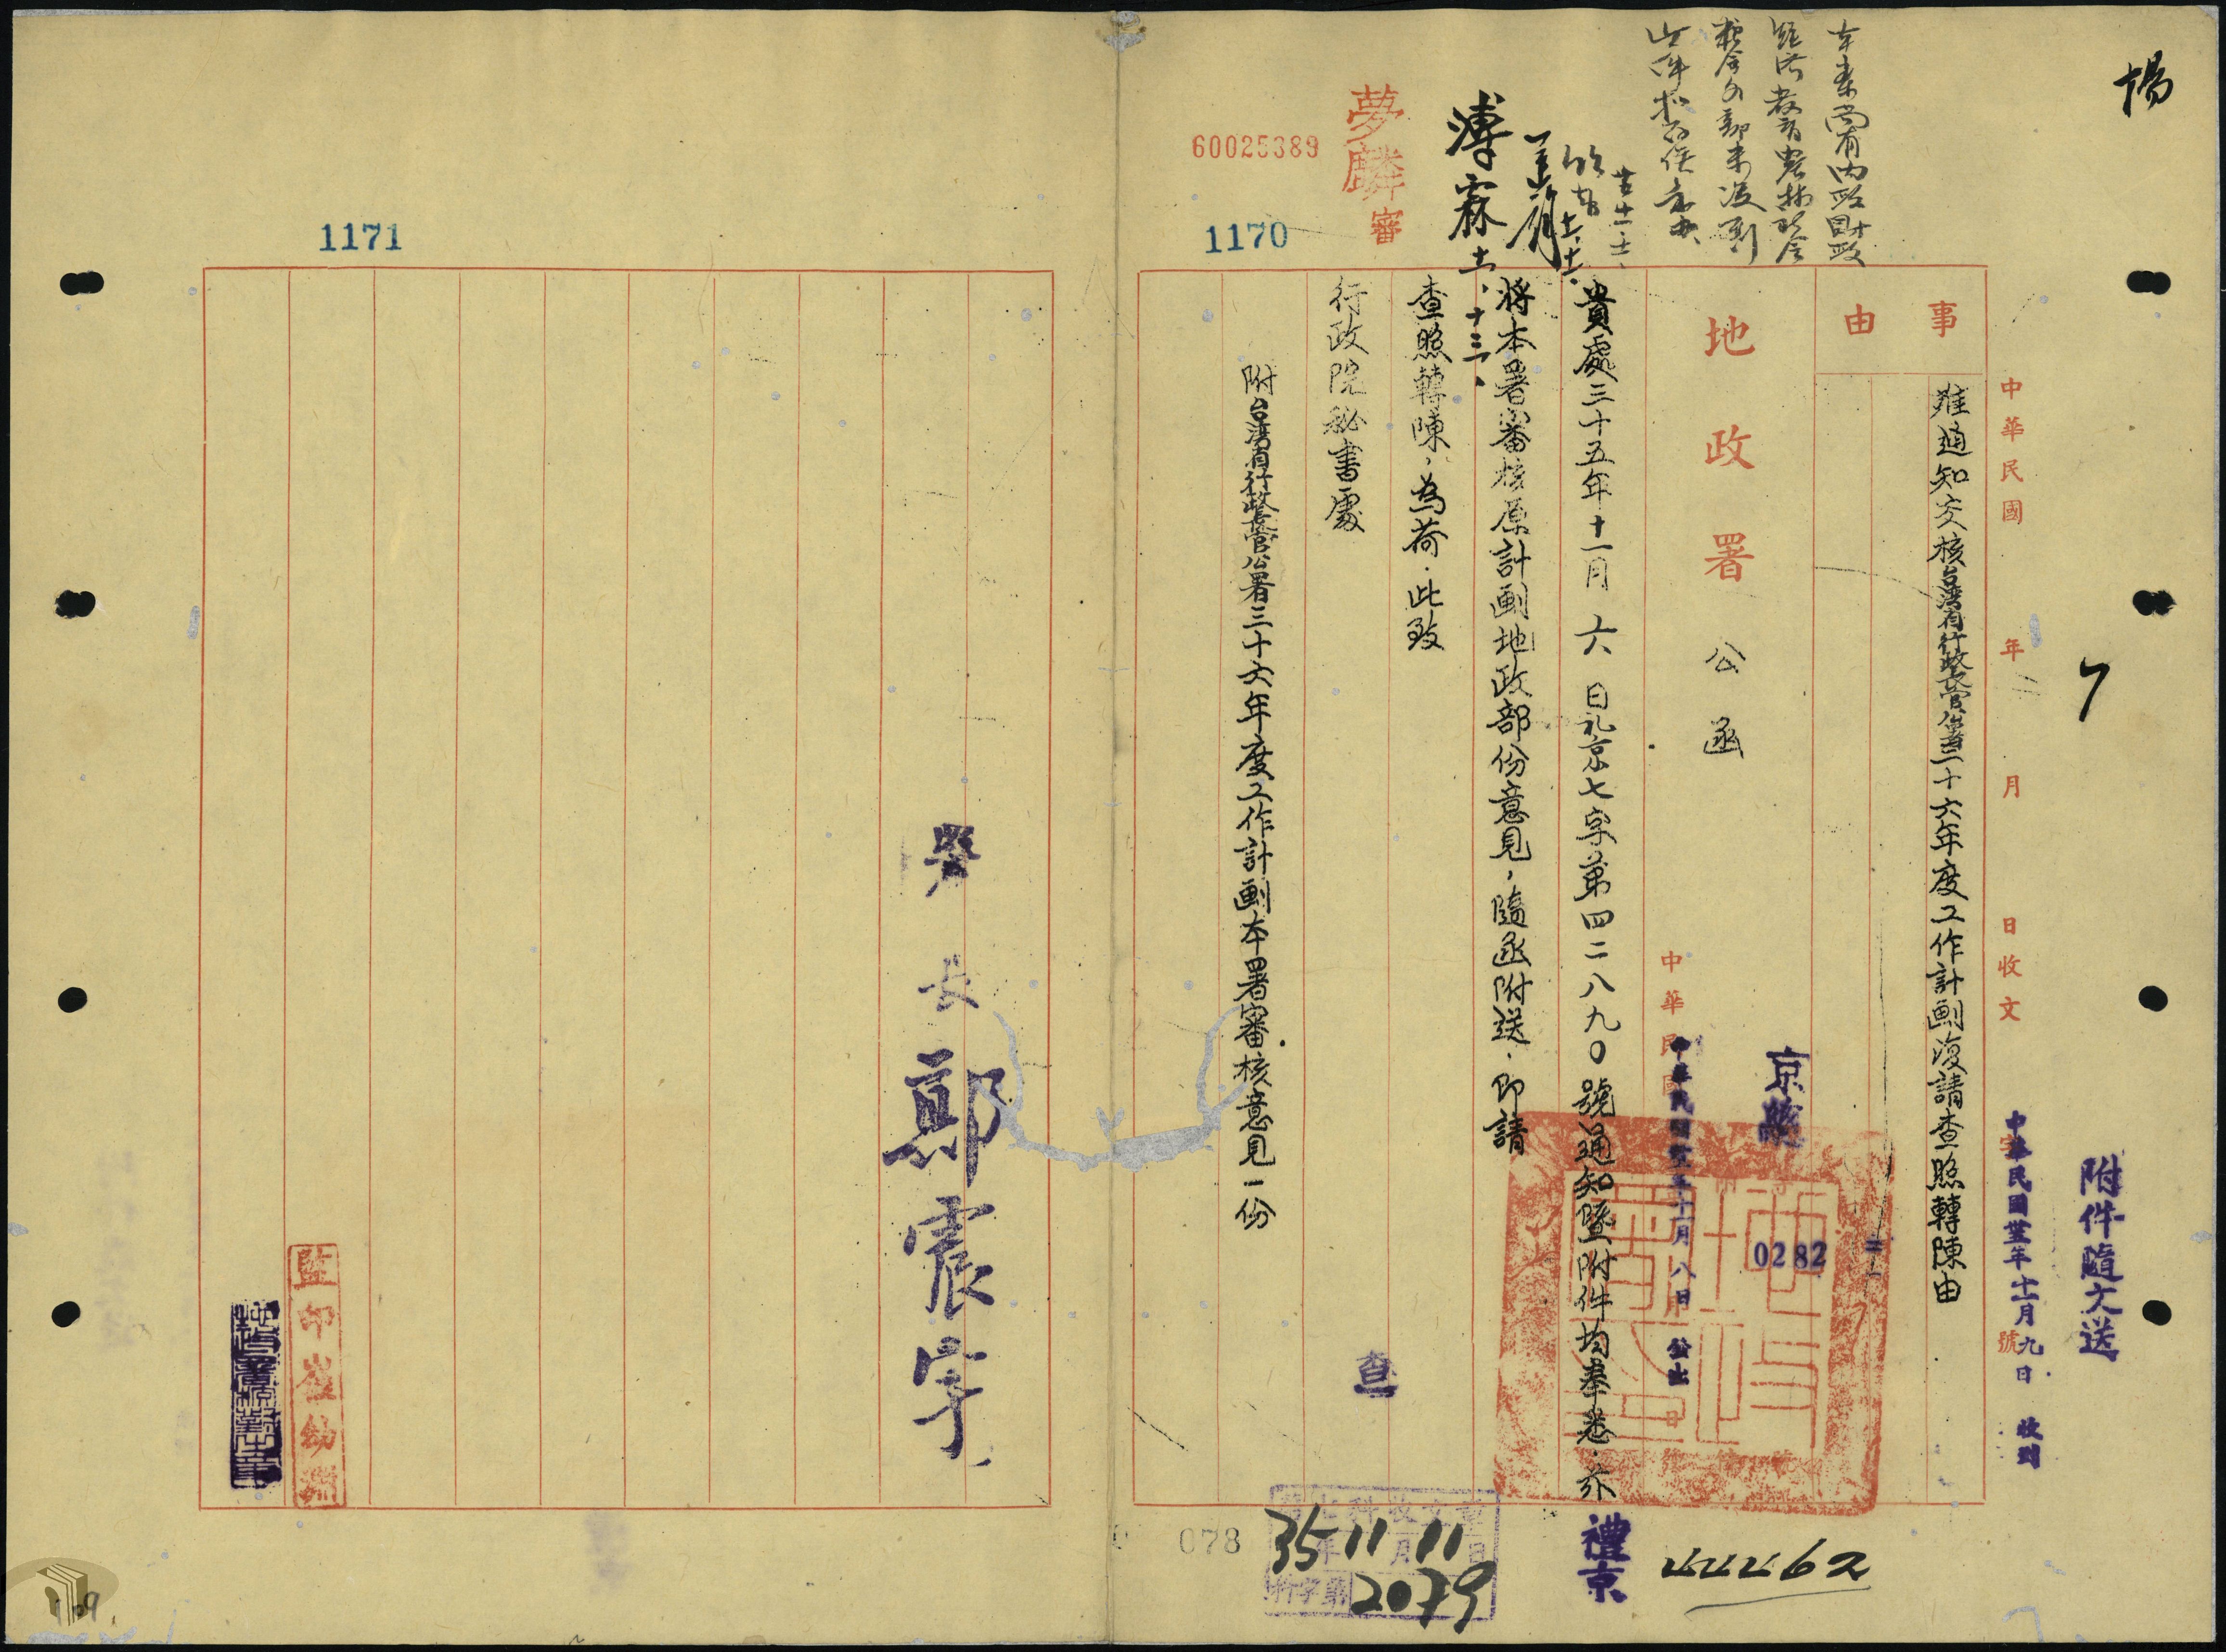 楊
7
附件隨文送
中華民國卅五年十一月九日 收到
中華民國 年 月 日收文 字 號
事由
准通知交核台灣省行政長官公署三十六年度工作計劃復請查照轉陳由
本案尚有內政財政
經濟教育農林social
糧食各部未復到
此件擬存俟彙办
地政署公函
京
0282
中華民國 年 月 日
中華民國卅五年十一月八日 發出
貴處三十五年十一月六日礼京七字第四二八九〇號通知暨附件均奉悉．茲
將本署審核原計劃地政部份意見，隨函附送．即請
查照轉陳，為荷．此致
行政院秘書處
附台灣省行政長官公署三十六年度工作計劃本署審核意見一份
十一、十三、
夢麟
審
60025389
1170
查
禮京
44462
35 11 11
2079
078
1171
署長 鄭震宇
監印崔幼淵